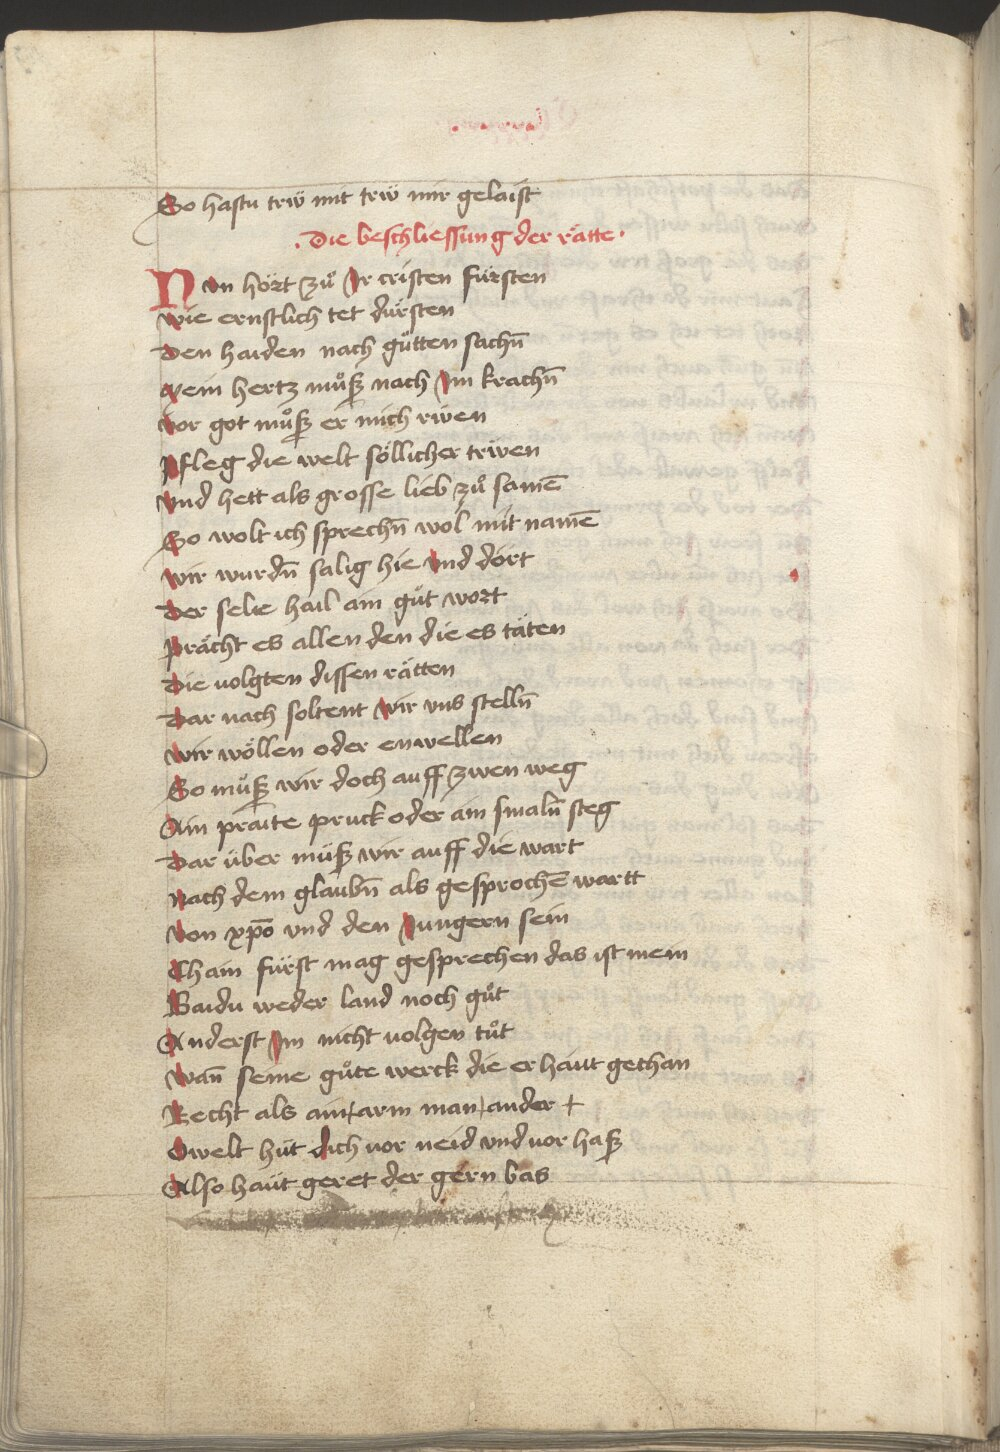 So hastu trẅ mit trẅ mir gelaist
· Die beschliessung der rätte ·
Nvn hört zuͦ Ir cristen fürsten
wie ernstlich tet dürsten
Den haiden nach guͦtten sachn̄
Mein hertz muͦß nach Im krachn̄
vor got muͦß er mich riwen
Pfleg die welt söllicher triwen
vnd hett als grosse lieb zuͦ samē
So wolt ich sprechn̄ wol mit namē
wir wurdn̄ salig hie vnd dört
Der selie hail ain guͦt wort
Prächt es allen den die es täten
Die uolgten dissen rätten
Dar nach soltent wir vns stelln̄
wir wöllen oder enwellen
So muͦß wir doch auff zwen weg
Ain praite pruck oder ain smaln̄ steg
Dar über müß wir auff die wart
Nach dem glaubn̄ als gesprochē wartt
von xp̄o vnd den Iungern sein
Chain fürst mag gesprechen das ist mein
Baidu weder land noch guͦt
Anderst Im nicht uolgen tuͦt
wan̄ seine guͦte werck die er haut gethan
Recht als ain arm man ander +
O welt hüt dich vor neid vnd vor haß
Also haüt geret der gern bas